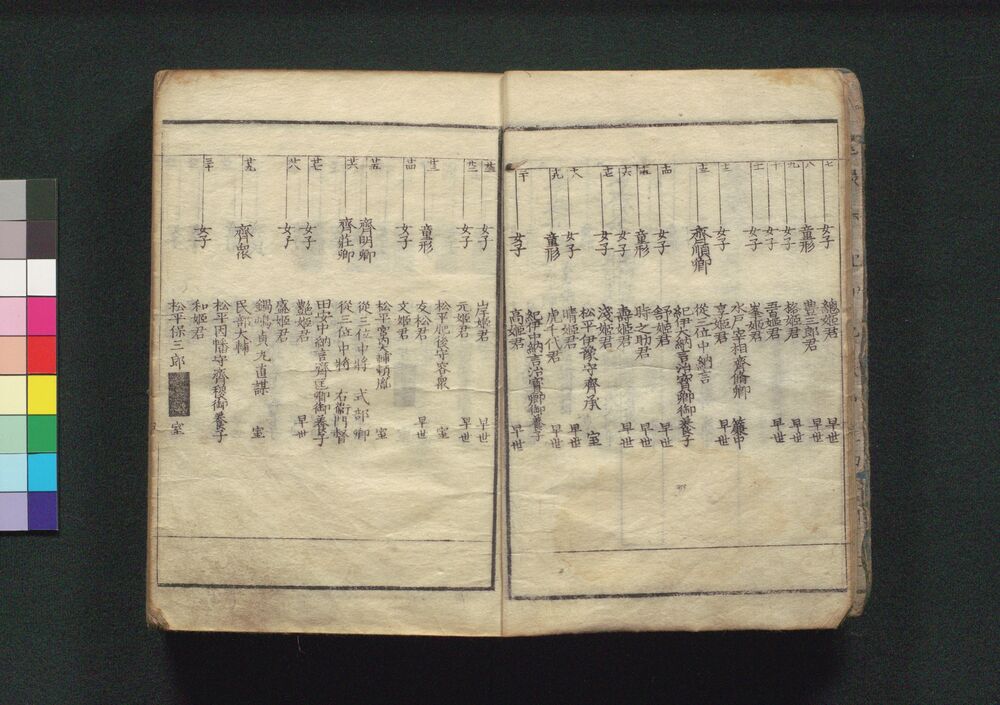 七 女子 總姫君 早世
八 童形 豊三郎君 早世
九 女子 格姫君 早世
十 女子 吾姫君 早世
十一 女子 峯姫君
水戸宰相齊脩卿 簾中
十二 女子 亨姫君 早世
十三 齊順卿 從二位中納言
紀伊大納言治寳卿御養子
十四 女子 舒姫君 早世
十五 童形 時之助君 早世
十六 女子 壽姫君 早世
十七 女子 淺姫君
松平伊豫守齊承 室
十八 女子 晴姫君 早世
十九 童形 虎千代君 早世
紀伊中納言治寳卿御養子
二十 女子 高姫君 早世
廿一 女子 岸姫君 早世
廿二 女子 元姫君 早世
松平肥後守容衆
廿三 童形 友松君 早世
廿四 女子 文姫君
松平宮内輔頼胤 室
廿五 齊明卿 從三位中將 式部卿
廿六 齊荘卿 從三位中將 右衛門督
田安中納言齊匡卿御養子
廿七 女子 艶姫君 早世
廿八 女子 盛姫君
鍋嶋貞丸直 室
廿九 齊衆 民部大輔
松平因幡守齊稷御養子
三十 女子 和姫君
松平保三郎 室